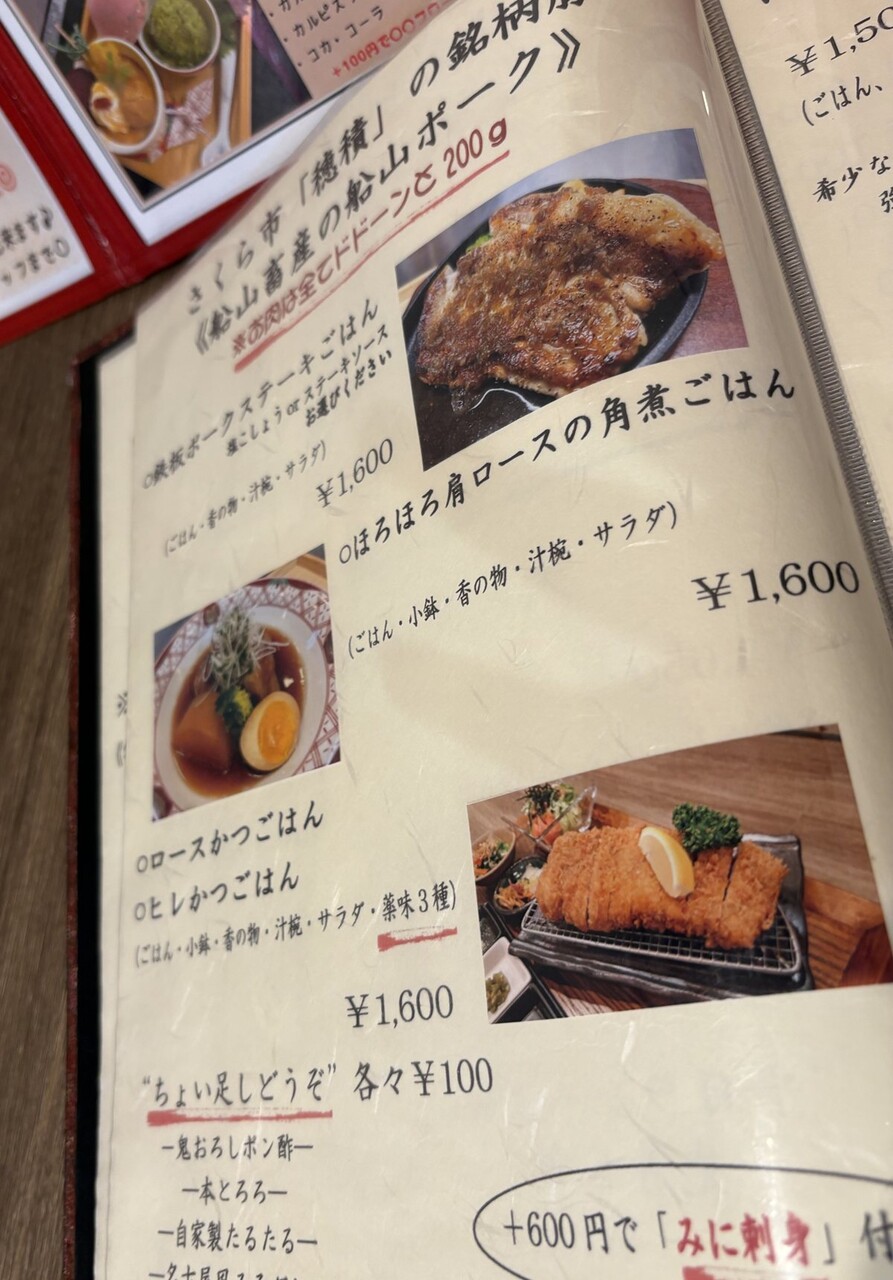 ・カルピス
・コカ・コーラ
+100円で〇〇フロー
来ます♪
ップまで〇
さくら市「穂積」の銘柄
《船山畜産の船山ポーク》
※お肉は全てドドーンと200g
○鉄板ポークステーキごはん
塩こしょう or ステーキソース
お選びください
(ごはん・香の物・汁椀・サラダ)
¥1,600
○ほろほろ肩ロースの角煮ごはん
(ごはん・小鉢・香の物・汁椀・サラダ)
¥1,600
○ロースかつごはん
○ヒレかつごはん
(ごはん・小鉢・香の物・汁椀・サラダ・薬味3種)
¥1,600
“ちょい足しどうぞ” 各々¥100
ー鬼おろしポン酢ー
ー本とろろー
ー自家製たるたるー
+600円で「みに刺身」付
¥1,50
(ごはん、
希少な